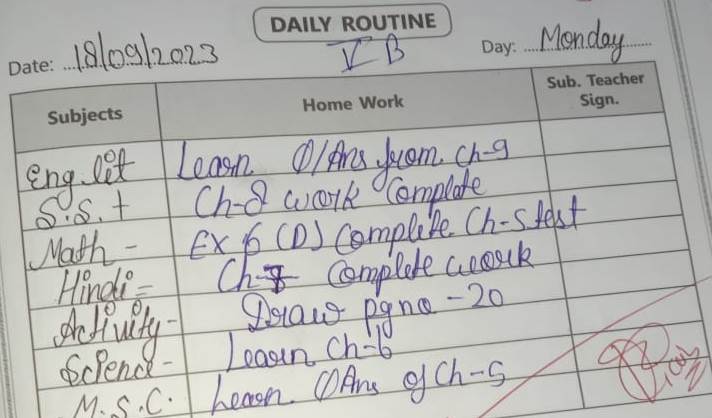 DAILY ROUTINE
Date: 18/09/2023 V B Day: Monday
Subjects Home Work Sub. Teacher Sign.
Eng. lit Learn Q/Ans from Ch-9
S.S.t Ch-8 work Complete
Math - EX 6 (D) Complete Ch-5 test
Hindi = Ch-7 Complete work
Activity - Draw pg no - 20
Science - Learn Ch-6
M.S.C. Learn Q/Ans of Ch-5